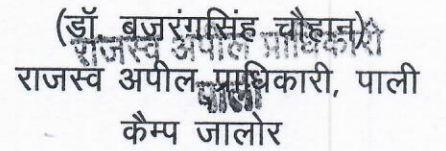 (डॉ. बजरंगसिंह चौहान)
राजस्व अपील प्राधिकारी
राजस्व अपील प्राधिकारी, पाली
पाली
कैम्प जालोर